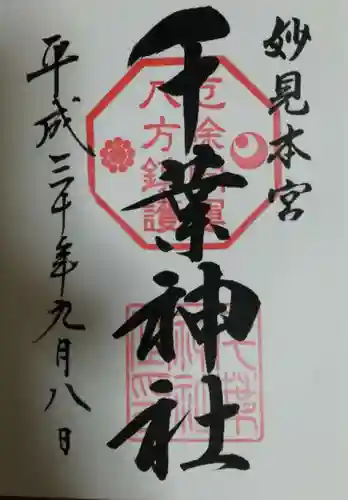 妙見本宮
千葉神社
平成三十年九月八日
八方鎮護